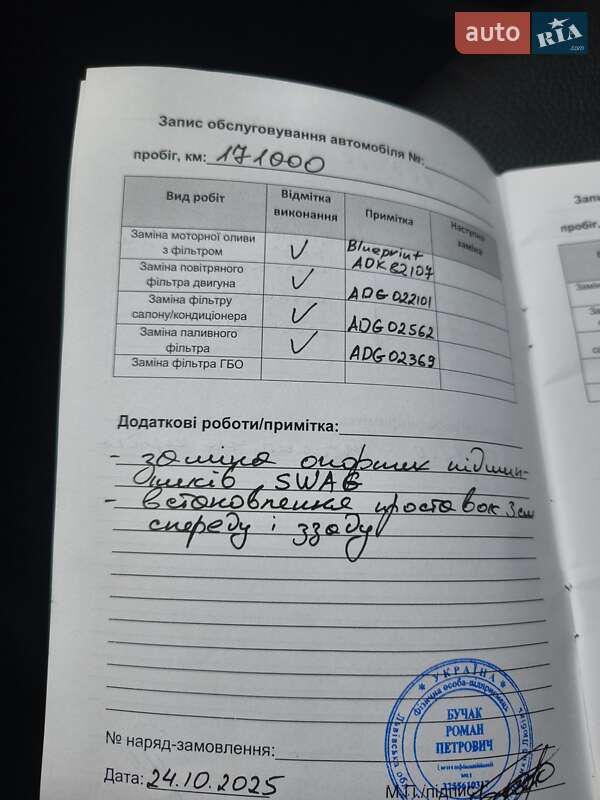 auto RIA .com
Запис обслуговування автомобіля №:
пробіг, км: 171000
Вид робіт Відмітка виконання Примітка Наступна заміна
Заміна моторної оливи з фільтром ✓ Blueprint ADK82107
Заміна повітряного фільтра двигуна ✓ ADG022101
Заміна фільтру салону/кондиціонера ✓ ADG02562
Заміна паливного фільтра ✓ ADG02369
Заміна фільтра ГБО
Додаткові роботи/примітка:
- заміна опорних підшип-
ників SWAG
- встановлення проставок 3 см
спереду і ззаду
№ наряд-замовлення:
Дата: 24.10.2025
М.П./підпис
УКРАЇНА
Фізична особа-підприємець
БУЧАК
РОМАН
ПЕТРОВИЧ
Запи
пробіг,